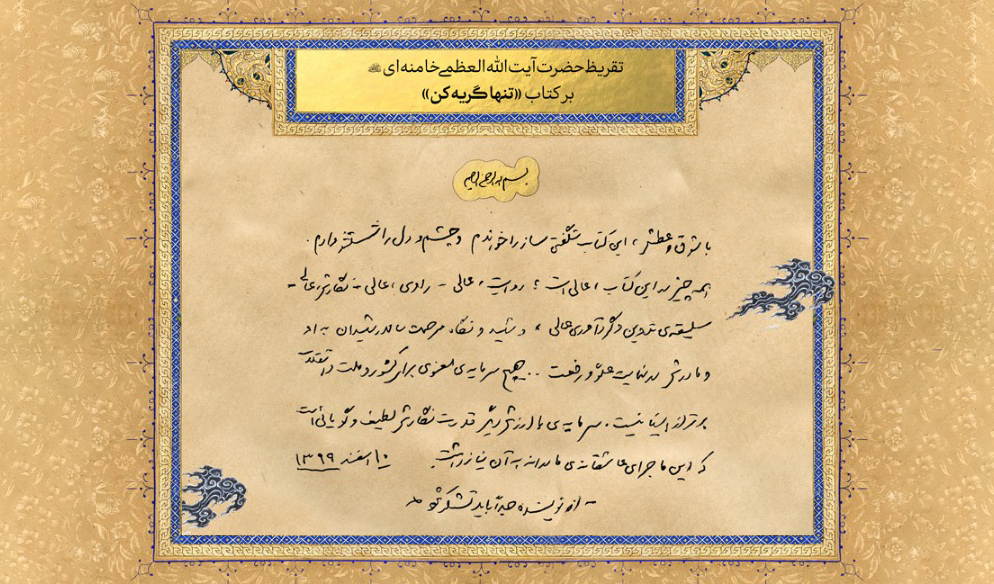 تقریظ حضرت آیت‌الله العظمی خامنه‌ای
بر کتاب «تنها گریه کن»
بسم الله الرحمن الرحیم
با شوق و عطش، این کتاب شگفتی ساز را خواندم و چشم و دل را شستشو دادم.
همه چیز در این کتاب، عالی است؛ روایت، عالی - راوی، عالی - نگارش، عالی -
سلیقه‌ی تدوین و گردآوری عالی، و شهید و نگاه مرحمت سالار شهیدان به او
و مادرش در نهایت علوّ و رفعت .. هیچ سرمایه‌ی معنوی برای کشور و ملت و انقلاب
برتر از اینها نیست. سرمایه‌ی باارزش دیگر قدرت نگارش لطیف و گویائی است
که این ماجرای عاشقانه‌ی مادرانه به آن نیاز داشت. ۱۰ اسفند ۱۳۹۹
- از نویسنده جدّاً باید تشکر شود -